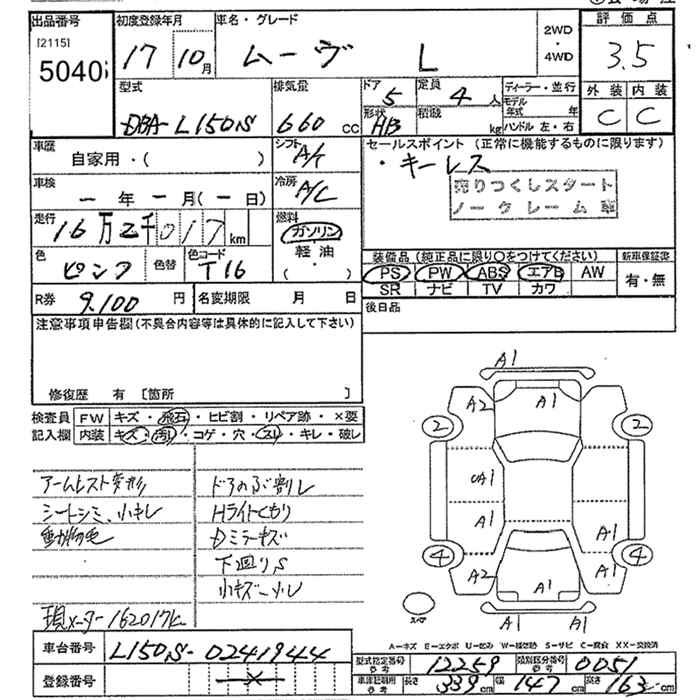 出品番号 初度登録年月 車名・グレード 2WD・4WD 評価点
[2115]
5040
17 10月 ムーヴ L 3.5
型式 排気量 ドア 5 定員 4人 ディーラー・並行 外装 内装
DBA-L150S 660cc 形状 HB 積載 kg モデル年式 年 C C
ハンドル 左・右
車歴 自家用・( ) シフト A/T セールスポイント (正常に機能するものに限ります)
・キーレス
車検 ー年ー月(ー日) 冷房 A/C 売りつくしスタート
ノークレーム車
走行 16万2千017km 燃料 ガソリン
軽油
( ・ )
色 ピンク 色替 色コード T16
装備品 (純正品に限り○をつけてください) 新車保証書
PS PW ABS エアB AW 有・無
SR ナビ TV カワ
R券 9,100円 名変期限 月 日 後日品
注意事項申告欄(不具合内容等は具体的に記入して下さい)
修復歴 有 [箇所 ]
検査員 FW キズ・飛石・ヒビ割・リペア跡・×要
記入欄 内装 キズ・汚レ・コゲ・穴・スレ・キレ・破レ
アームレスト変形
シートシミ、小キレ
動物毛
ドアのぶ割レ
Hライトくもり
Dミラーキズ
下廻りS
小キズ・小レ
現メーター162017K
A1
A2 A1
2 2
UA1
A1 A1
4 4
A2 A1 A1
A1 A1
スペア
A=キズ E=エクボ U=凹み W=補修跡 S=サビ C=腐食 XX=交換済
車台番号 L150S-0241944
登録番号 ×
型式指定番号 参考 12259 類別区分番号 参考 0051
車庫証明用 参考 長さ 339cm 幅 147cm 高さ 163cm